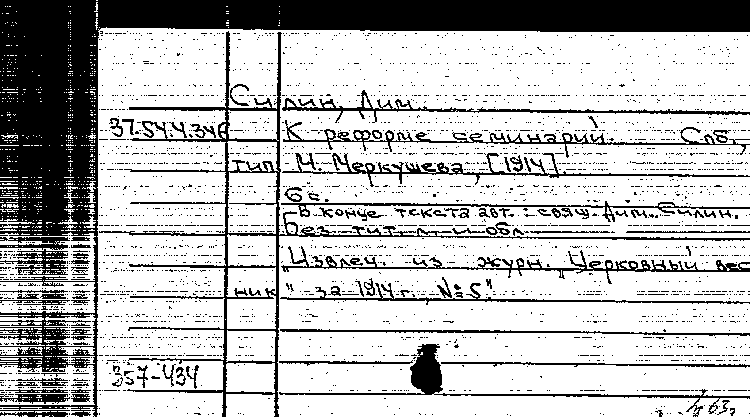 Силин, Дим.
37.54.4.346
К реформе семинарий. Спб.,
тип. М. Меркушева, [1914].
6 с.
В конце текста авт.: свящ. Дим. Силин.
Без тит. л. и обл.
"Извлеч. из журн. "Церковный вес
ник" за 1914 г., № 5".
357-434
63г